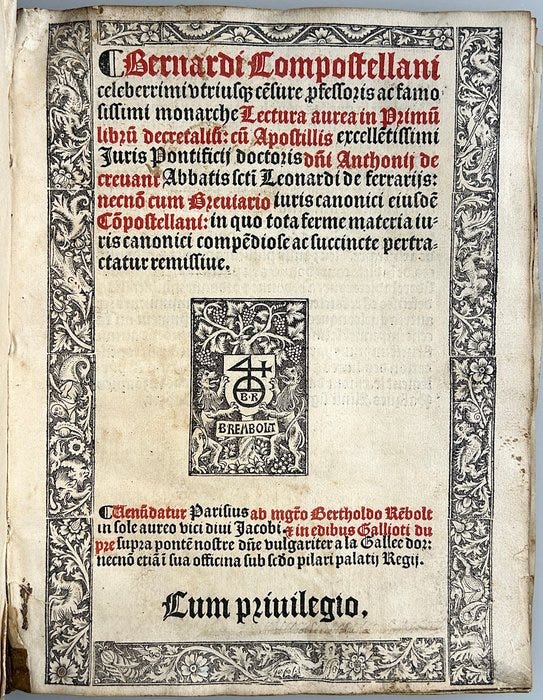 ¶Bernardi Compostellani
celeberrimi vtriusqꝫ cẽsure ꝓfessoris ac famo
sissimi monarche Lectura aurea in Primũ
librũ decretaliũ: cũ Apostillis excellẽtissimi
Juris Pontificij doctoris dñi Anthonij de
creuant Abbatis scti Leonardi de ferrarijs:
necnõ cum Breuiario iuris canonici eiusdẽ
Cõpostellani: in quo tota ferme materia iu-
ris canonici compẽdiose ac succincte pertra-
ctatur remissiue.
B·R
BREMBOLT
¶Uenũdatur Parisius ab mgr̃o Bertholdo Rẽbolt
in sole aureo vici diui Jacobi. ⁊ in edibus Gallioti du
pre supra pontẽ nostre dñe vulgariter a la Gallee dor:
necnõ etiã ĩ sua officina sub scd̃o pilari palatij Regij.
Cum priuilegio.